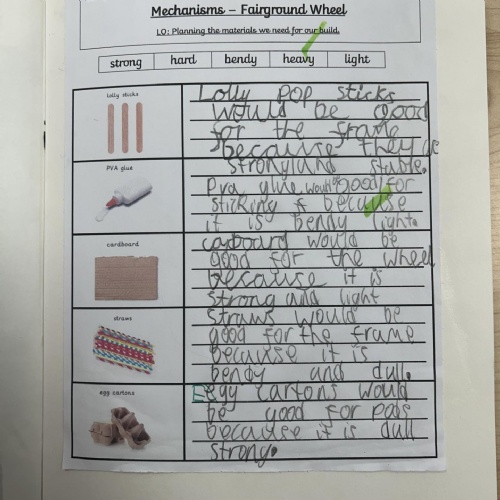 Mechanisms – Fairground Wheel
LO: Planning the materials we need for our build.
strong hard bendy heavy light
lolly sticks
Lolly pop sticks
would be good
for the frame
because they ar
strong and stable.
PVA glue
Pva glue would be good for
sticking & because
it is bendy light.
cardboard
carboard would be
good for the wheel
because it is
strong and light
straws
Straws would be
good for the frame
because it is
bendy and dull.
egg cartons
Eegg cartons would
be good for pods
because it is dull
strong.